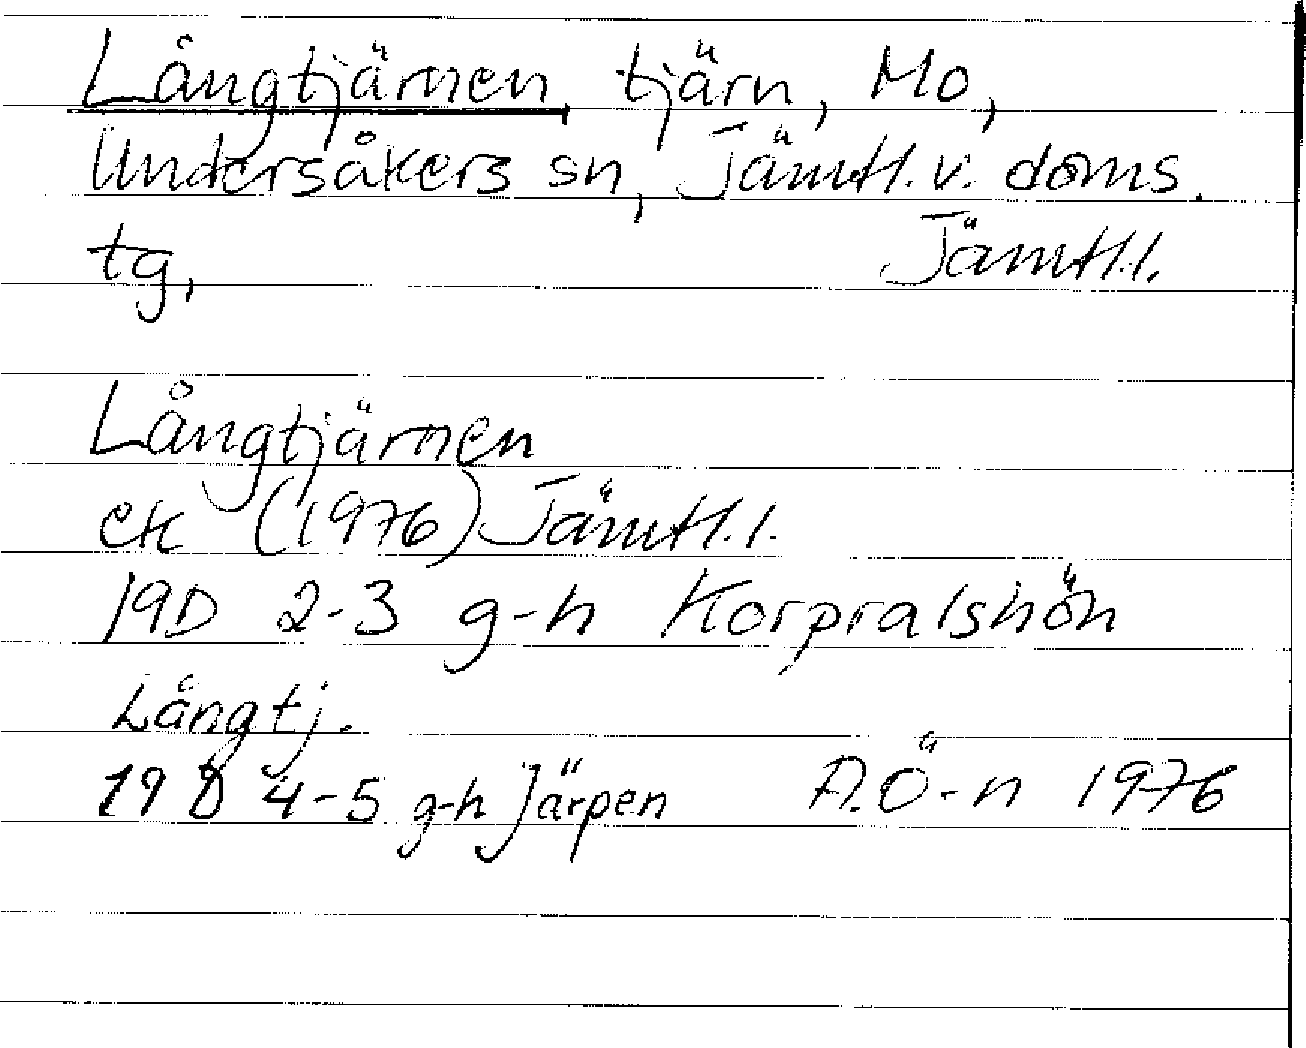 Långtjärnen, tjärn, Mo,
Undersåkers sn, Jämtl. v. doms.
tg, Jämtl.l.
Långtjärnen
ek (1976) Jämtl.l.
19D 2-3 g-h Korpralshön
Långtj.
19D 4-5 g-h Järpen A.Ö-n 1976